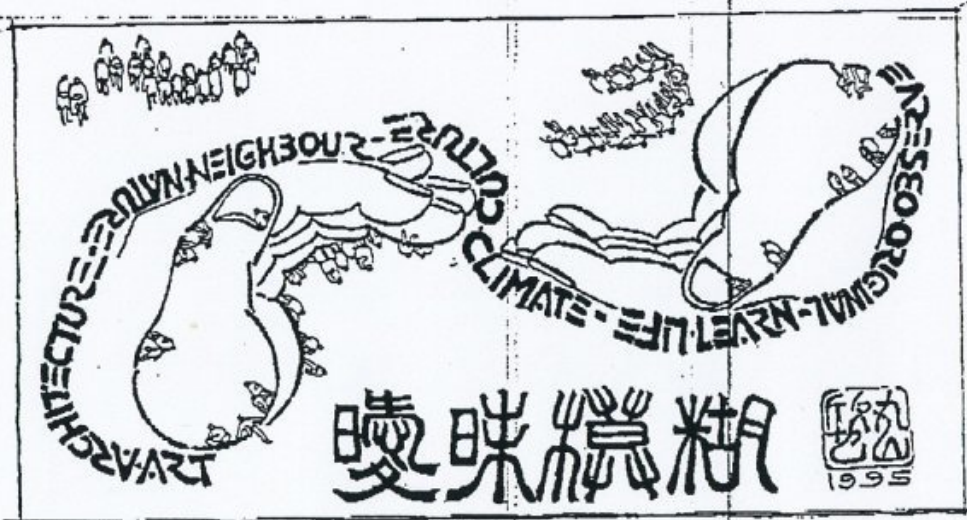 ART·ARCHITECTURE-NATURE·NEIGHBOUR-CULTURE·CLIMATE-LIFE·LEARN-ORIGINAL·OBSERVE
曖昧模糊
1995